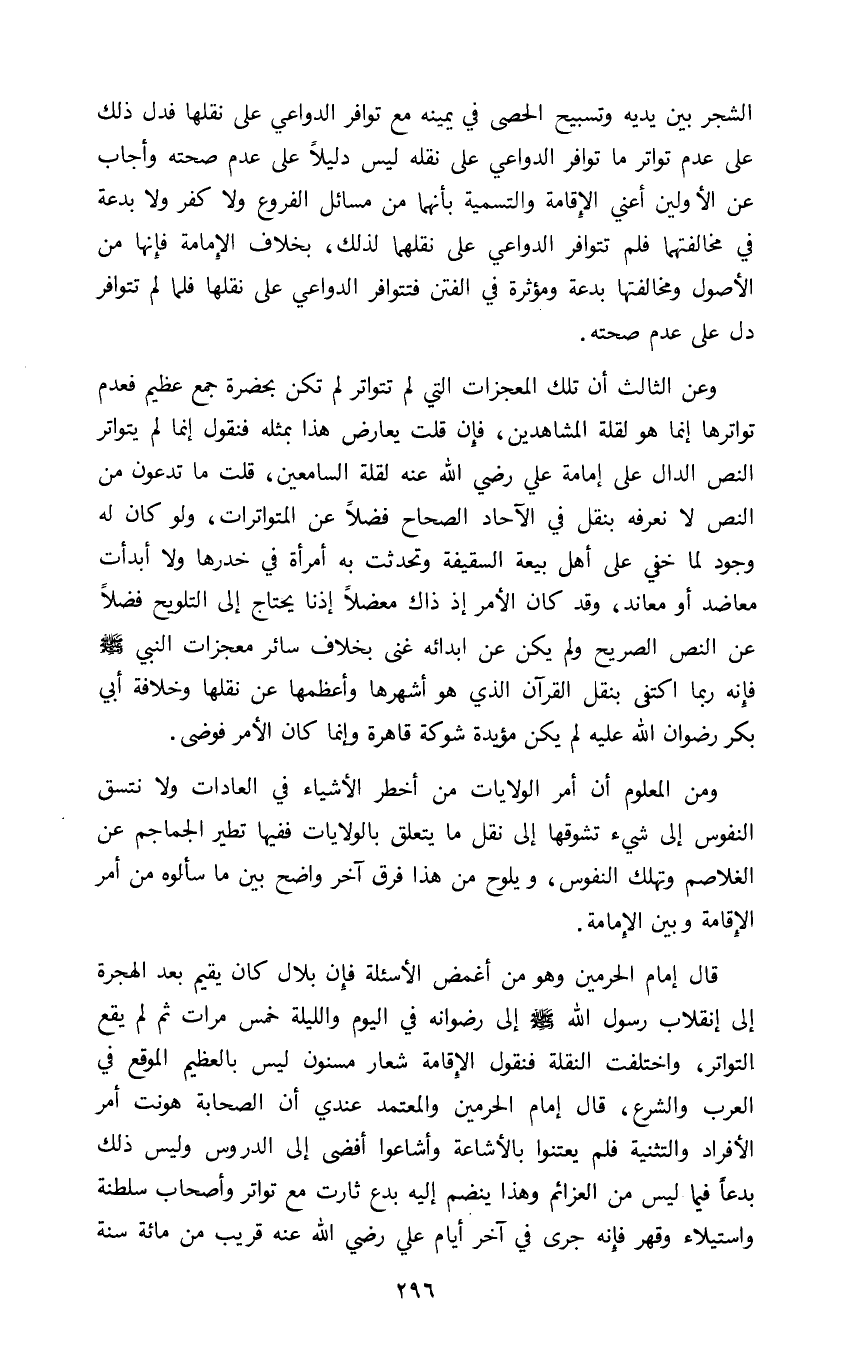 الشجر بين يديه وتسبيح الحصى في يمينه مع توافر الدواعي على نقلها فدل ذلك
على عدم تواتر ما توافر الدواعي على نقله ليس دليلاً على عدم صحته وأجاب
عن الأولين أعني الإقامة والتسمية بأنهما من مسائل الفروع ولا كفر ولا بدعة
في مخالفتهما فلم تتوافر الدواعي على نقلهما لذلك، بخلاف الإمامة فإنها من
الأصول ومخالفتها بدعة ومؤثرة في الفتن فتتوافر الدواعي على نقلها فلما لم تتوافر
دل على عدم صحته.
وعن الثالث أن تلك المعجزات التي لم تتواتر لم تكن بحضرة جمع عظيم فعدم
تواترها إنما هو لقلة المشاهدين، فإن قلت يعارض هذا بمثله فنقول إنما لم يتواتر
النص الدال على إمامة علي رضي الله عنه لقلة السامعين، قلت ما تدعون من
النص لا نعرفه بنقل في الآحاد الصحاح فضلاً عن المتواترات، ولو كان له
وجود لما خفي على أهل بيعة السقيفة وتحدثت به أمرأة في خدرها ولا أبدأت
معاضد أو معاند، وقد كان الأمر إذ ذاك معضلاً إذنا يحتاج إلى التلويح فضلاً
عن النص الصريح ولم يكن عن ابدائه غنى بخلاف سائر معجزات النبي ﷺ
فإنه ربما اكتفى بنقل القرآن الذي هو أشهرها وأعظمها عن نقلها وخلافة أبي
بكر رضوان الله عليه لم يكن مؤيدة شوكة قاهرة وإنما كان الأمر فوضى.
ومن المعلوم أن أمر الولايات من أخطر الأشياء في العادات ولا نتسق
النفوس إلى شيء تشوقها إلى نقل ما يتعلق بالولايات ففيها تطير الجماجم عن
الغلاصم وتهلك النفوس، ويلوح من هذا فرق آخر واضح بين ما سألوه من أمر
الإقامة وبين الإمامة.
قال إمام الحرمين وهو من أغمض الأسئلة فإن بلال كان يقيم بعد الهجرة
إلى إنقلاب رسول الله ﷺ إلى رضوانه في اليوم والليلة خمس مرات ثم لم يقع
التواتر، واختلفت النقلة فنقول الإقامة شعار مسنون ليس بالعظيم الموقع في
العرب والشرع، قال إمام الحرمين والمعتمد عندي أن الصحابة هونت أمر
الأفراد والتثنية فلم يعتنوا بالأشاعة وأشاعوا أفضى إلى الدروس وليس ذلك
بدعاً فيما ليس من العزائم وهذا ينضم إليه بدع ثارت مع تواتر وأصحاب سلطنة
واستيلاء وقهر فإنه جرى في آخر أيام علي رضي الله عنه قريب من مائة سنة
٢٩٦